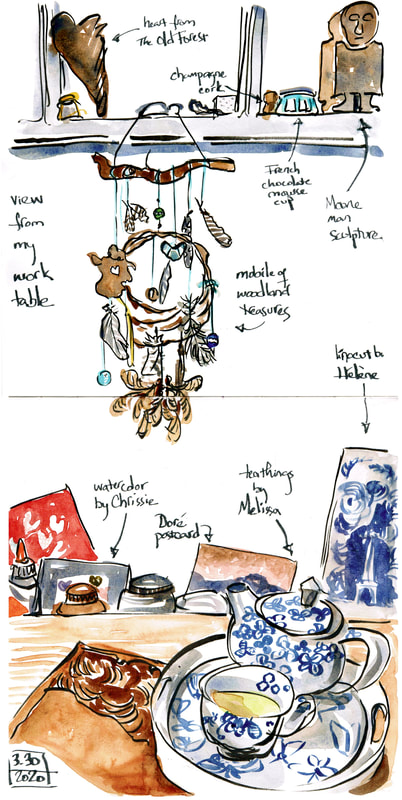 heart from
The Old Forest
champagne
cork
French
chocolate
mousse
cup
Moone
man
sculpture
view
from
my
work
table
mobile of
woodland
treasures
Hélène
watercolor
by Chrissie
Doré
postcard
teathings
by
Melissa
3.30
2020